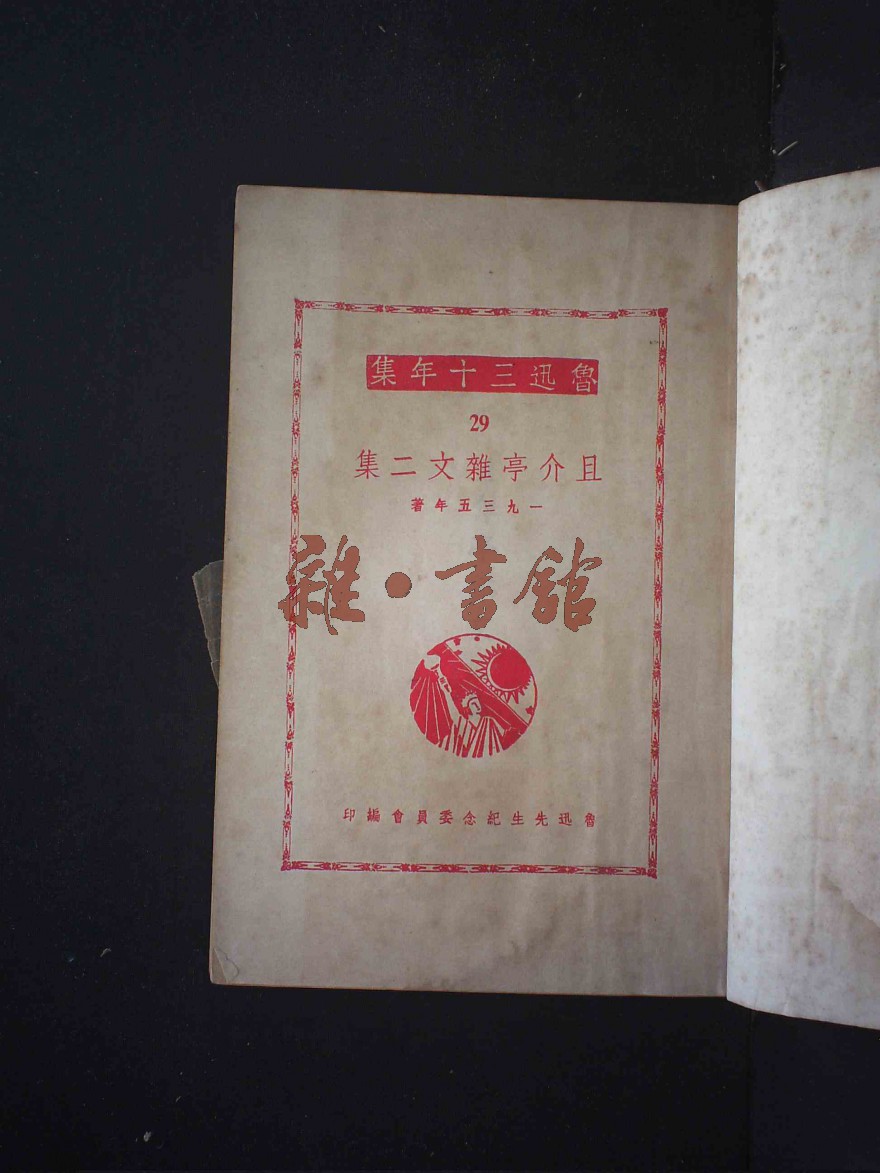 魯迅三十年集
29
且介亭雜文二集
一九三五年著
雜·書館
魯迅先生紀念委員會編印